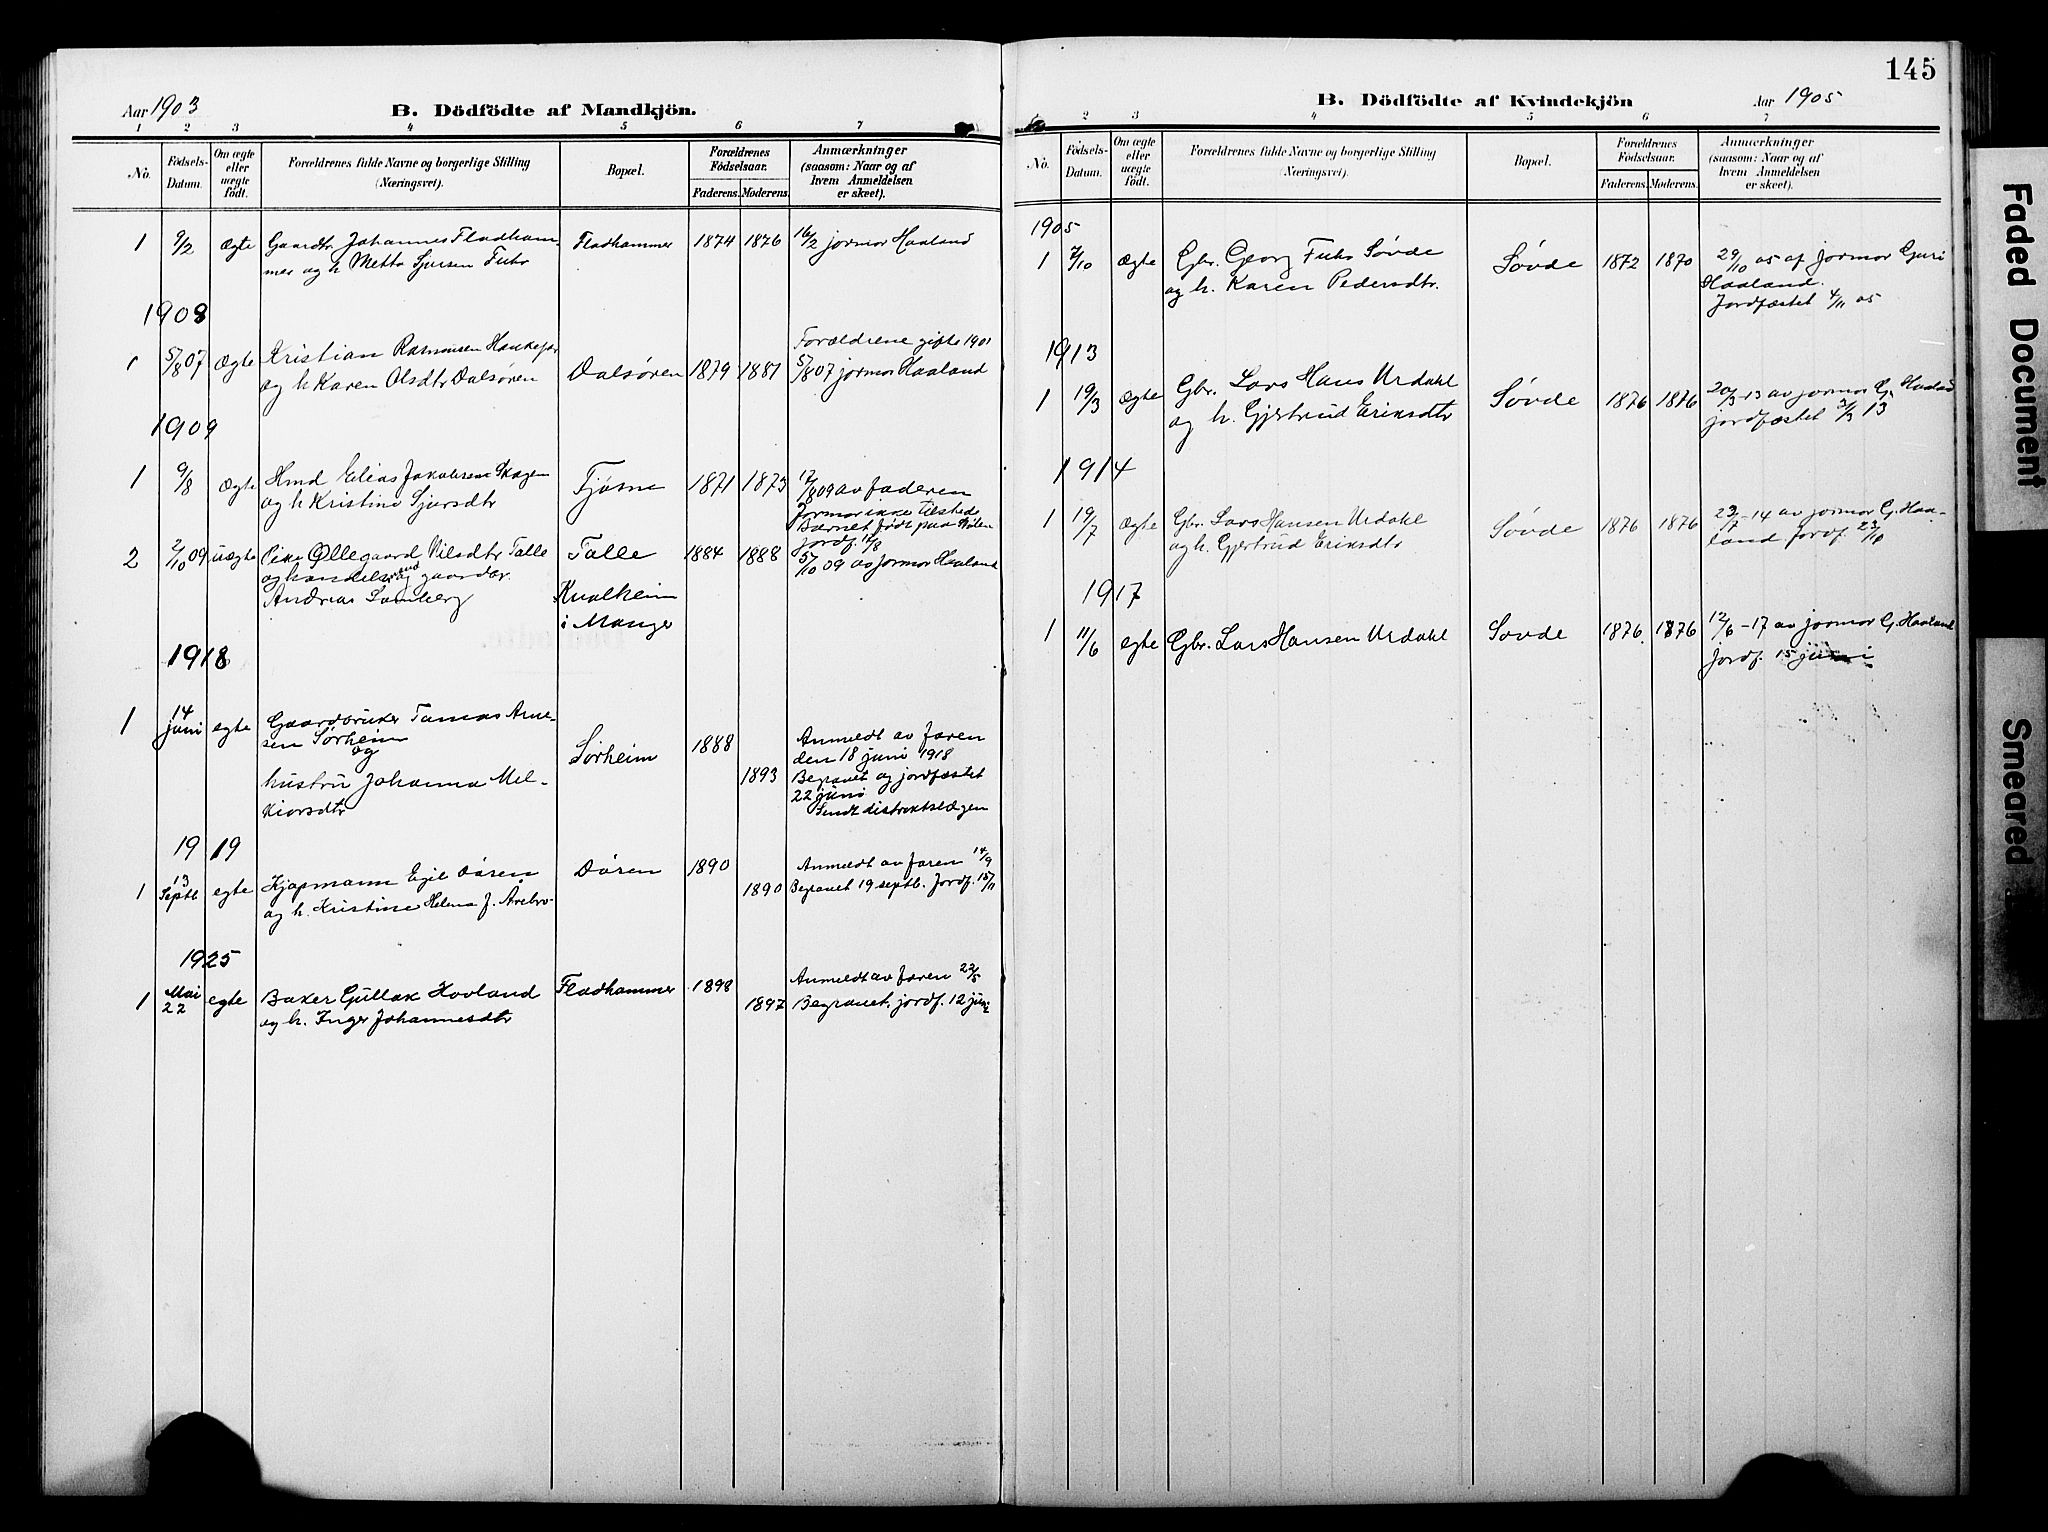 Aar 1903
B. Dödfödte af Mandkjön.
1 2 3 4 5 6 7
No.
Födsels-Datum.
Om ægte eller uægte födt.
Forældrenes fulde Navne og borgerlige Stilling
(Næringsvei).
Bopæl.
Forældrenes Födselsaar.
Faderens. Moderens.
Anmærkninger
(saasom: Naar og af
hvem Anmeldelsen
er skeet).
1 9/2 ægte Gaardbr Johannes Fladham Fladhammer 1874 1876 16/2 jormor Haaland
mer og h Mette Sjursen Fuhr
1908
Forældrene gifte 1901
1 5/8 07 Ægte Kristian Rasmussen Dalsøren 1879 1881 5/8 07 jormor Haaland
og h Karen Olsdtr Dalsøren
1909
1 9/8 Ægte Hmd Elias Jakobsen Skagen Fjøsne 1871 1873 12/8 09 av faderen
og h Kristine Sjursdtr
Jormor ikke tilstede
Barnet født paa
jordf. 14/8
2 2/10 09 uægte Pike Øllegaard Nilsdtr Talle Talle 1884 1888 5/10 09 av jormor Haaland
og handelsmand og gaardbr.
Andreas Kvalheim
i Manger
1918
1 14 juni egte Gaardbruker Tomas Arne-
sen Sørheim Sørheim 1888 Anmeldt av faren
og den 18 juni 1918
hustru Johanna Mel- 1893 Begravet og jordfæstet
kiorsdtr 22 juni
Sendt distriktslægen
1919
1 13 Septb egte Kjøpmann Egil Døsen Døsen 1890 Anmeldt av faren 14/9
og h. Kristine Helena f. Årebro- 1890 Begravet 19 septb. Jordf. 15/11
1925
1 Mai 22 egte Baker Gullak Hovland Fladhammer 1898 Anmeldt av faren 22/5
og h. Inger Johannesdtr 1897 Begravet, jordf. 12 juni
145
B. Dödfödte af Kvindekjön
Aar 1905
2 3 4 5 6 7
No.
Födsels-Datum.
Om ægte eller uægte födt.
Forældrenes fulde Navne og borgerlige Stilling
(Næringsvei).
Bopæl.
Forældrenes Födselsaar.
Faderens. Moderens.
Anmærkninger
(saasom: Naar og af
hvem Anmeldelsen
er skeet).
1905
1 7/10 ægte Gbr. Georg Fuhr Søvde Søvde 1872 1870 29/10 05 af jormor Guri
og h. Karen Pedersdtr. Haaland.
Jordfæstet 4/11 05
1913
1 19/3 ægte Gbr. Lars Hans Urdahl Søvde 1876 1876 20/3-13 av jormor G. Haaland
og h. Gjertrud Eriksdtr jordfæstet 13
1914
1 19/7 ægte Gbr. Lars Hansen Urdahl Søvde 1876 1876 23/7-14 av jormor G. Haa-
og h. Gjertrud Eriksdtr land Jordf. 23/10
1917
1 11/6 egte Gbr. Lars Hansen Urdahl Sovde 1876. 1876 12/6-17 av jormor G. Haaland
jordf. 15 juni
Faded Document
Smeared